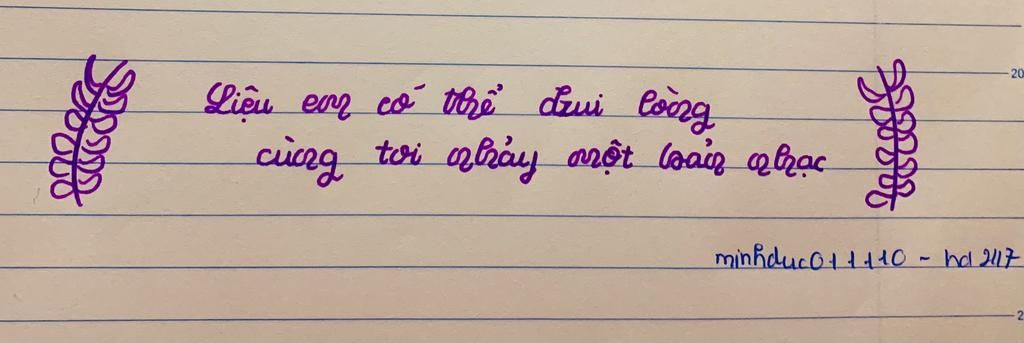 Liệu em có thể dzui lòng
cùng tơi nhảy một bản nhạc
minhduc011110 - hd 247
20
2